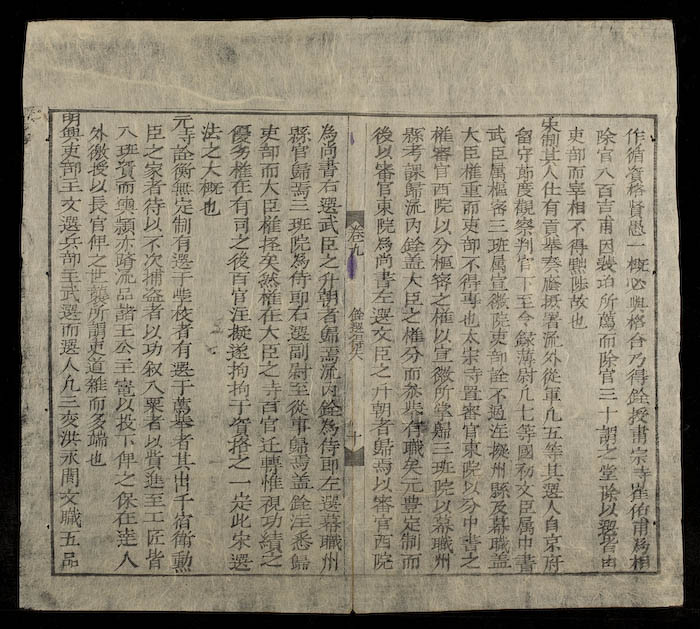 作循資格賢愚一概必與格合乃得銓授肅宗寺崔伯甫為相
除官八百吉甫因裴垍所薦而除官三十謂之堂除以翌皆由
吏部而宰相不得與陟故也
宋制其入仕有貢舉奏廕攝署流外從軍凡五等其選人自京府
留守節度觀察判官下至令錄薄尉凡七等國初文臣属中書
武臣属樞密三班属宣徽院吏部銓不過注擬州縣及幕職盖
大臣權重而吏部不得專也太宗寺置審官東院以分中書之
權審官西院以分樞密之權以宣徽所掌歸三班院以幕職州
縣考課歸流内銓盖大臣之權分而叅有職矣元豊定制而
後以審官東院為尚書左選文臣之升朝者歸焉以審官西院
卷九
銓選
十
為尚書右選武臣之升朝者歸焉流内銓為侍郎左選幕職州
縣官歸焉三班院為侍郎右選副尉至從事歸焉盖銓注悉歸
吏部而大臣權輕矣然權在大臣之寺百官迁轉惟視功績之
優劣權在有司之後百官注擬遂拘拘于資格之一定此宋選
法之大概也
元寺詮衡無定制有選于學校者有選于薦舉者其出于宿衛勲
臣之家者待以不次捕盗者以功叙入粟者以貲進至工匠皆
入班資而輿頴亦躋流品諸王公主寵以投下俾之保任逺人
外徼授以長官俾之世襲所謂吏道雜而多端也
明興吏部主文選兵部主武選而選人凡三变洪永間文職五品